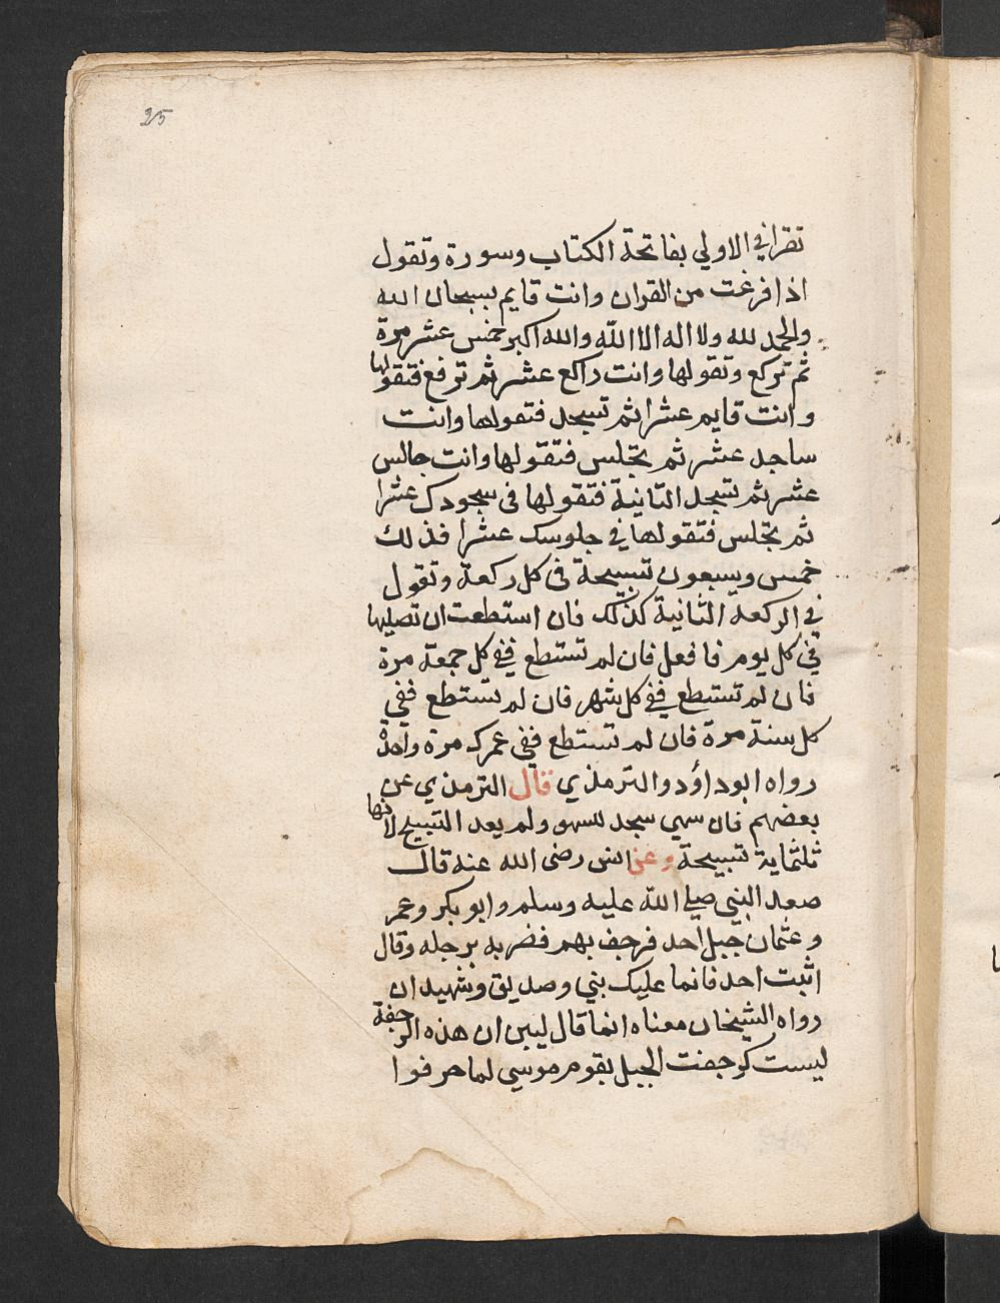 25
تقرا في الاولي بفاتحة الكتاب وسورة وتقول
اذا فرغت من القران وانت قايم سبحان الله
والحمد لله ولا اله الا الله والله اكبر خمس عشر مرة
ثم تركع وتقولها وانت راكع عشر ثم ترفع فتقولها
وانت قايم عشرا ثم تسجد فتقولها وانت
ساجد عشر ثم تجلس فتقولها وانت جالس
عشر ثم تسجد الثانية فتقولها في سجودك عشرا
ثم تجلس فتقولها في جلوسك عشرا فذلك
خمس وسبعون تسبيحة في كل ركعة وتقول
في الركعة الثانية كذلك فان استطعت ان تصليها
في كل يوم فافعل فان لم تستطع ففي كل جمعة مرة
فان لم تستطع ففي كل شهر فان لم تستطع ففي
كل سنة مرة فان لم تستطع ففي عمرك مرة واحدة
رواه ابو داؤد والترمذي قال الترمذي عن
بعضهم فان سهي سجد للسهو ولم يعد التسبيح لانها
ثلثماية تسبيحة وعن انس رضي الله عنه قال
صعد النبي صلي الله عليه وسلم وابو بكر وعمر
وعثمان جبل احد فرجف بهم فضربه برجله وقال
اثبت احد فانما عليك نبي وصديق وشهيدان
رواه الشيخان معناه انما قال ليبين ان هذه الرجفة
ليست كرجفت الجبل بقوم موسي لما حرفوا